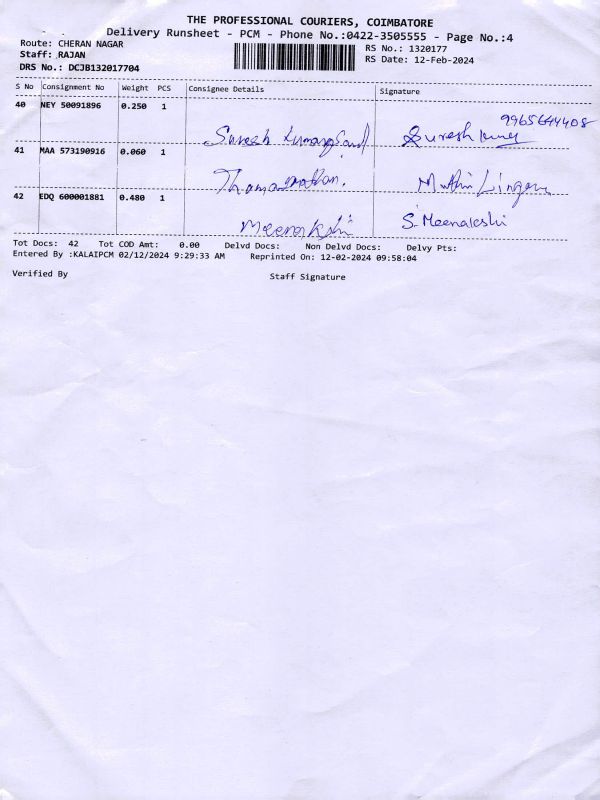 THE PROFESSIONAL COURIERS, COIMBATORE
Delivery Runsheet - PCM - Phone No.:0422-3505555 - Page No.:4
Route: CHERAN NAGAR
RS No.: 1320177
Staff: RAJAN
RS Date: 12-Feb-2024
DRS No.: DCJB132017704
S No Consignment No Weight PCS Consignee Details Signature
40 NEY 50091896 0.250 1
9965644408
Suresh Kumar Suresh kumar
41 MAA 573190916 0.060 1
42 EDQ 600001881 0.480 1
Meenakshi S. Meenakshi
Tot Docs: 42 Tot COD Amt: 0.00 Delvd Docs: Non Delvd Docs: Delvy Pts:
Entered By :KALAIPCM 02/12/2024 9:29:33 AM Reprinted On: 12-02-2024 09:58:04
Verified By Staff Signature